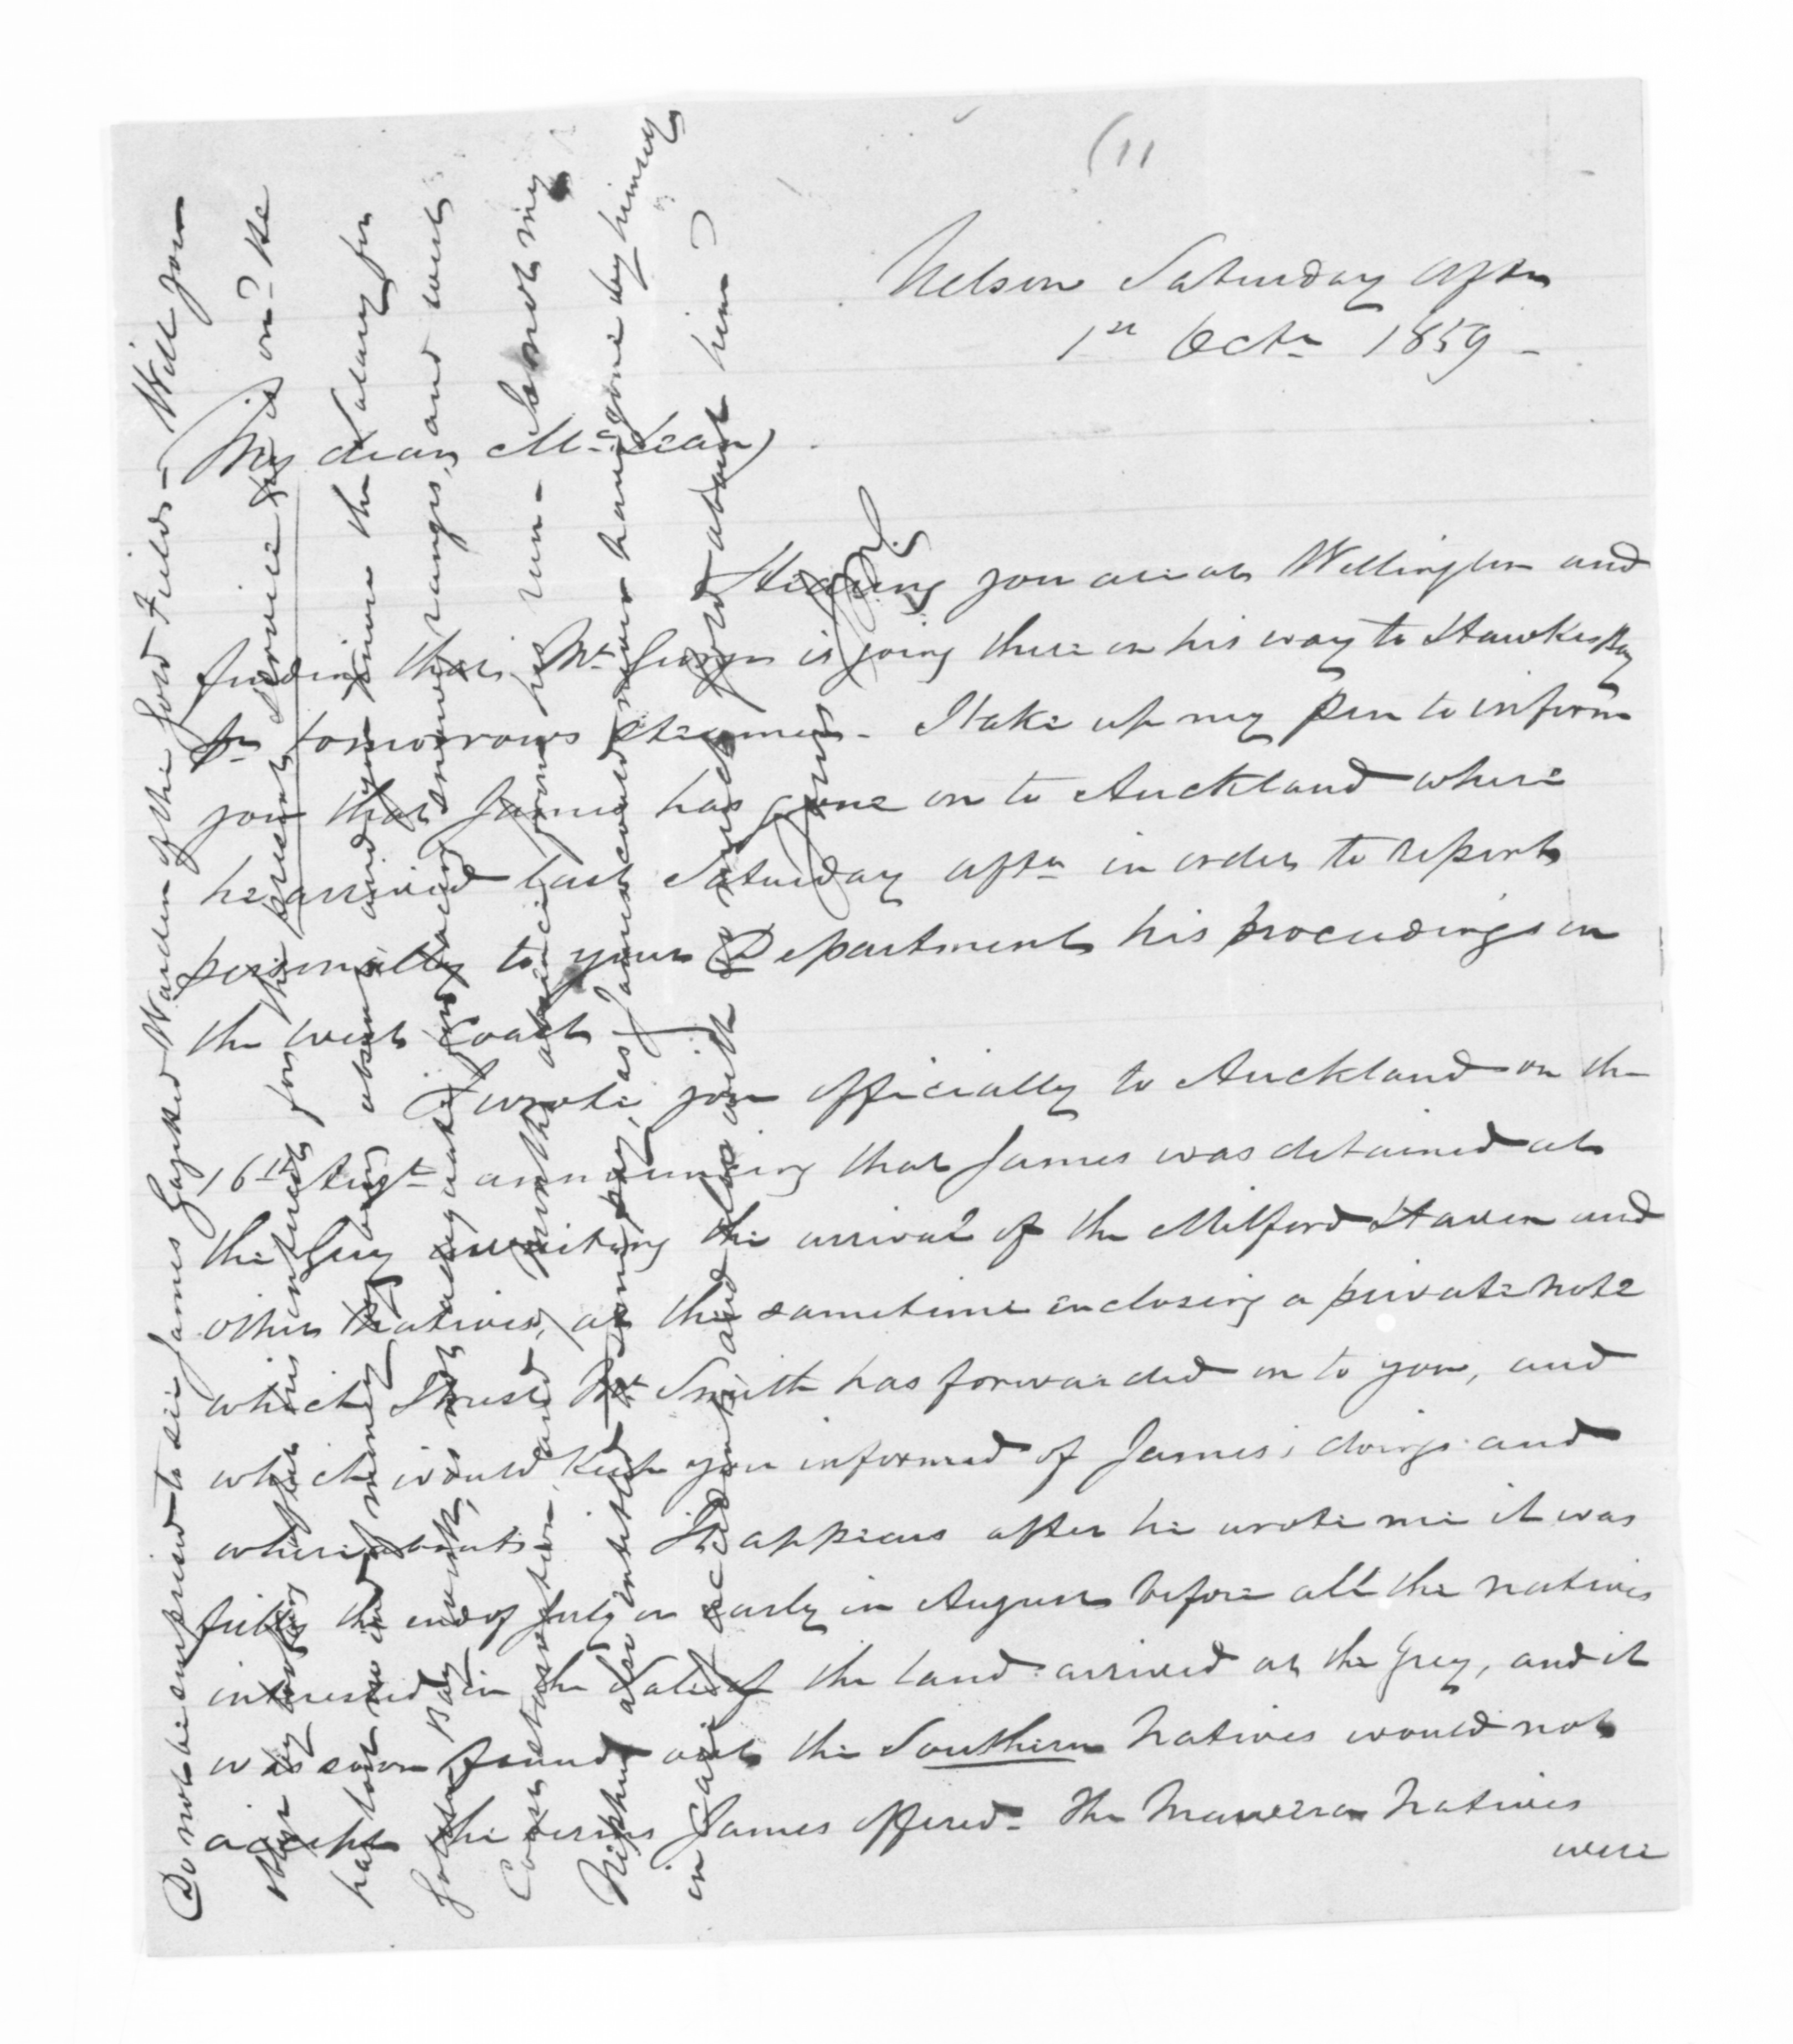 (11
Nelson Saturday aftn
1st Octr 1859 -
My dear McLean,
Hearing you are at Wellington and
finding that Mr is going there on his way to Hawkes Bay
pr tomorrows steamer - I take up my pen to inform
you that James has gone on to Auckland where
he arrived last Saturday aftn in order to report
personally to your Department his proceedings on
the West Coast -
I wrote you officially to Auckland on the
16th Augt announcing that James was detained at
the Grey awaiting the arrival of the Milford Haven and
other Natives, at the same time enclosing a private note
which I trust Mr Smith has forwarded on to you, and
which would keep you informed of James's doings and
whereabouts - It appears after he wrote me it was
fully the end of July or early in August before all the natives
interested in the Sale of the land arrived at the Grey, and it
was soon found out the Southern Natives would not
accept the terms James offered - The Natives
were
Do not be surprised to see James Gazetted Warden of the Gold Fields - Will you
for the present service he is on? He
has lost no end of money by being absent, and you know the Salary for
Golden Bay work, was and snowy ranges, and went
Consideration, and months absence from his run - I know my
Nephew also entitled to some pay, as James could never have gone by himself
in case accident and also with so much gold about him)